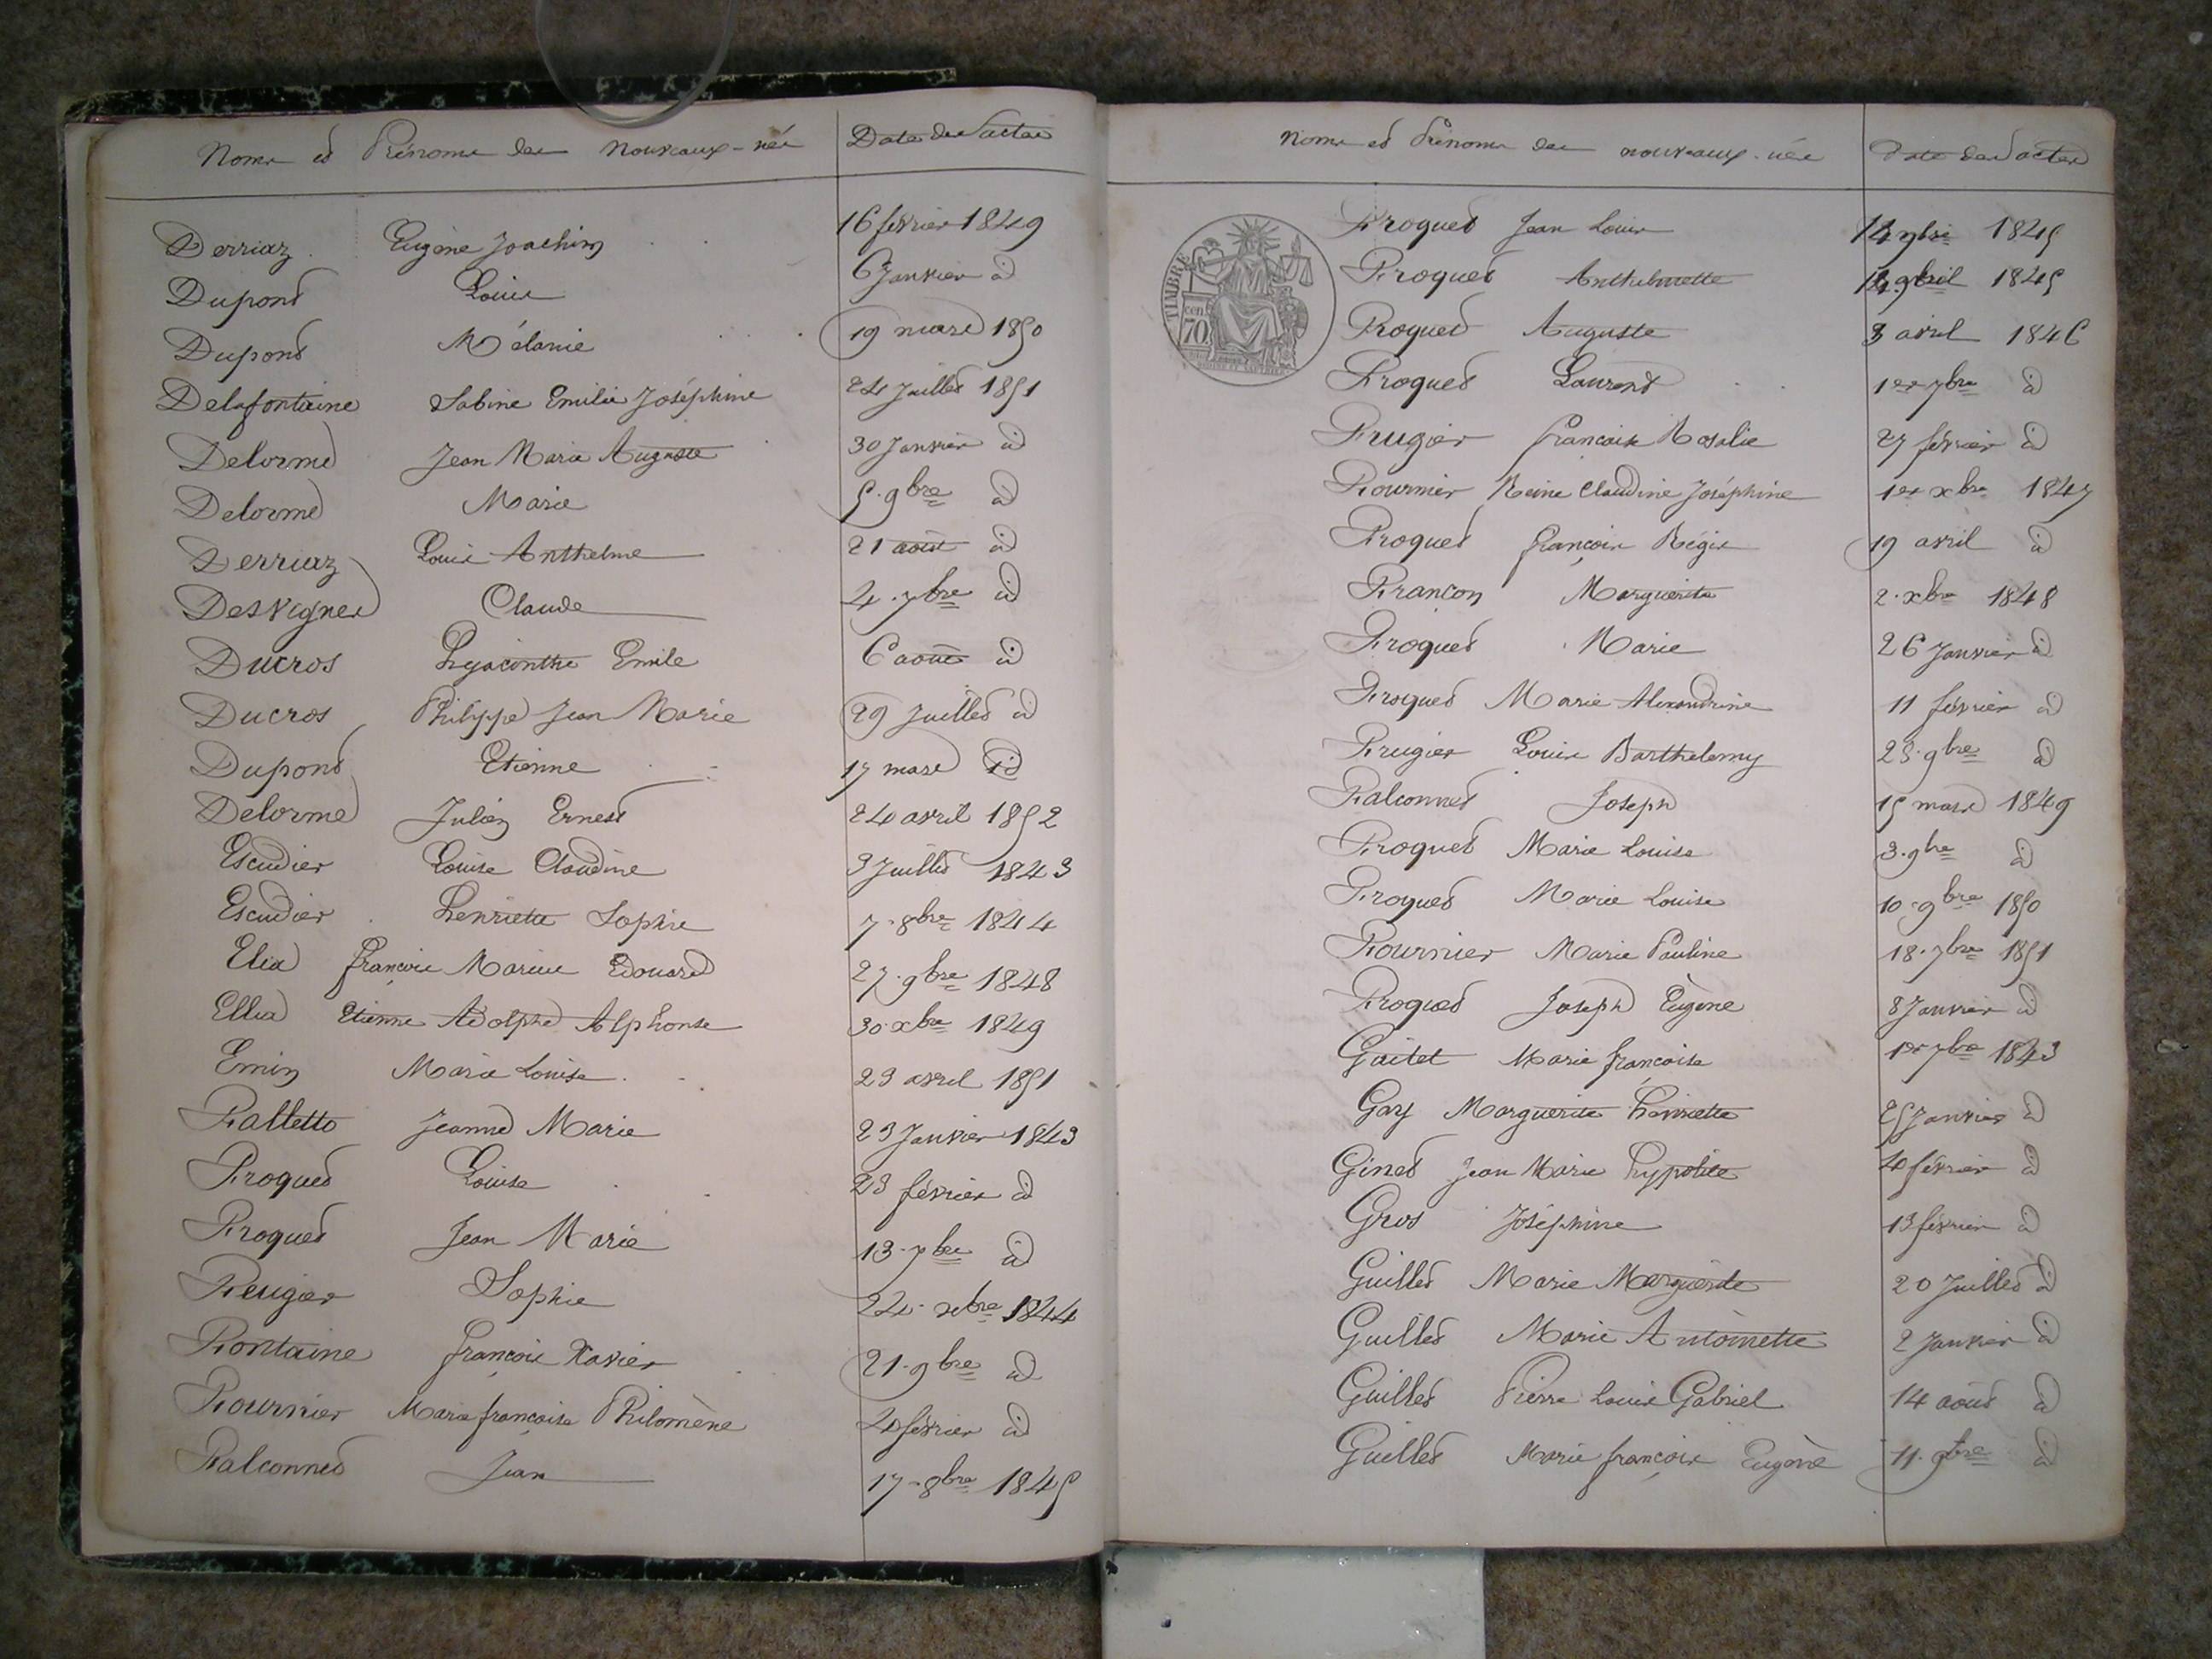 Noms et Prénoms des nouveaux-nés Date des actes
Derriaz Eugène Joachim 16 février 1849
Dupond Louis 6 Janvier id
Dupond Mélanie 19 mars 1850
Delafontaine Sabine Emilie Joséphine 24 Juillet 1851
Delorme Jean Marie Auguste 30 Janvier id
Delorme Marie 5. 9bre id
Derriaz Louis Anthelme 21 août id
Desvignes Claude 4. 7bre id
Ducros Hyacinthe Emile 6 août id
Ducros Philippe Jean Marie 29 Juillet id
Dupond Etienne 17 mars id
Delorme Julien Ernest 24 avril 1852
Escudier Louise Claudine 3 Juillet 1843
Escudier henriette Sophie 7. 8bre 1844
Elia françois Marius Edouard 27. 9bre 1848
Ellia Etienne Adolphe Alphonse 30. xbre 1849
Emin Marie Louise 29 avril 1851
Falletto Jeanne Marie 23 Janvier 1843
Froquet Louise 23 février id
Froquet Jean Marie 13. id
Frugier Sophie 24. xbre 1844
Fontaine françois Xavier 21. 9bre id
Fournier Marie françoise Philomène 4 février id
Falconnet Jean 17. 8bre 1845
Noms et Prénoms des nouveaux-nés Date des actes
TIMBRE
70
cen
Froquet Jean Louis 14 9bre 1845
Froquet Anthelmette 1845
Froquet Auguste 3 avril 1846
Froquet Laurent 1er 7bre id
Frugier françoise Rosalie 27 février id
Fournier Reine Claudine Joséphine 1er xbre 1847
Froquet françois Régis 19 avril id
Françon Marguerite 2. xbre 1848
Froquet Marie 26 Janvier id
Froquet Marie Alexandrine 11 février id
Frugier Louis Barthelemy 23. 9bre id
Falconnet Joseph 15 mars 1849
Froquet Marie Louise 3. 9bre id
Froquet Marie Louise 10. 9bre 1850
Fournier Marie Pauline 18. 7bre 1851
Froquet Joseph Eugène 8 Janvier id
Gaitet Marie françoise 1er 7bre 1843
Gay Marguerite henriette 25 Janvier id
Ginet Jean Marie hypolite 4 février id
Gros Joséphine 13 février id
Guillet Marie Marguerite 20 Juillet id
Guillet Marie Antoinette 2 Janvier id
Guillet Pierre Louis Gabriel 14 août id
Guillet Marie françois Eugène 11. 9bre id